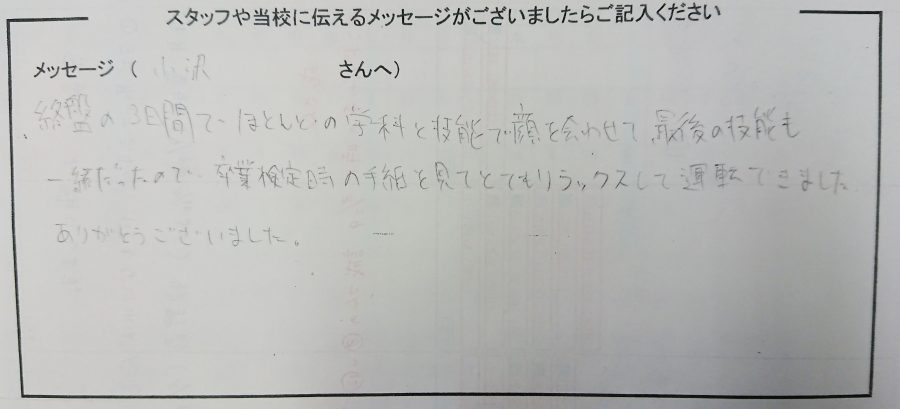 スタッフや当校に伝えるメッセージがございましたらご記入ください
メッセージ ( 小沢 さんへ)
終盤の3日間で、ほとんどの学科と技能で顔を合わせて、最後の技能も
一緒だったので、卒業検定時の手紙を見てとてもリラックスして運転できました
ありがとうございました。